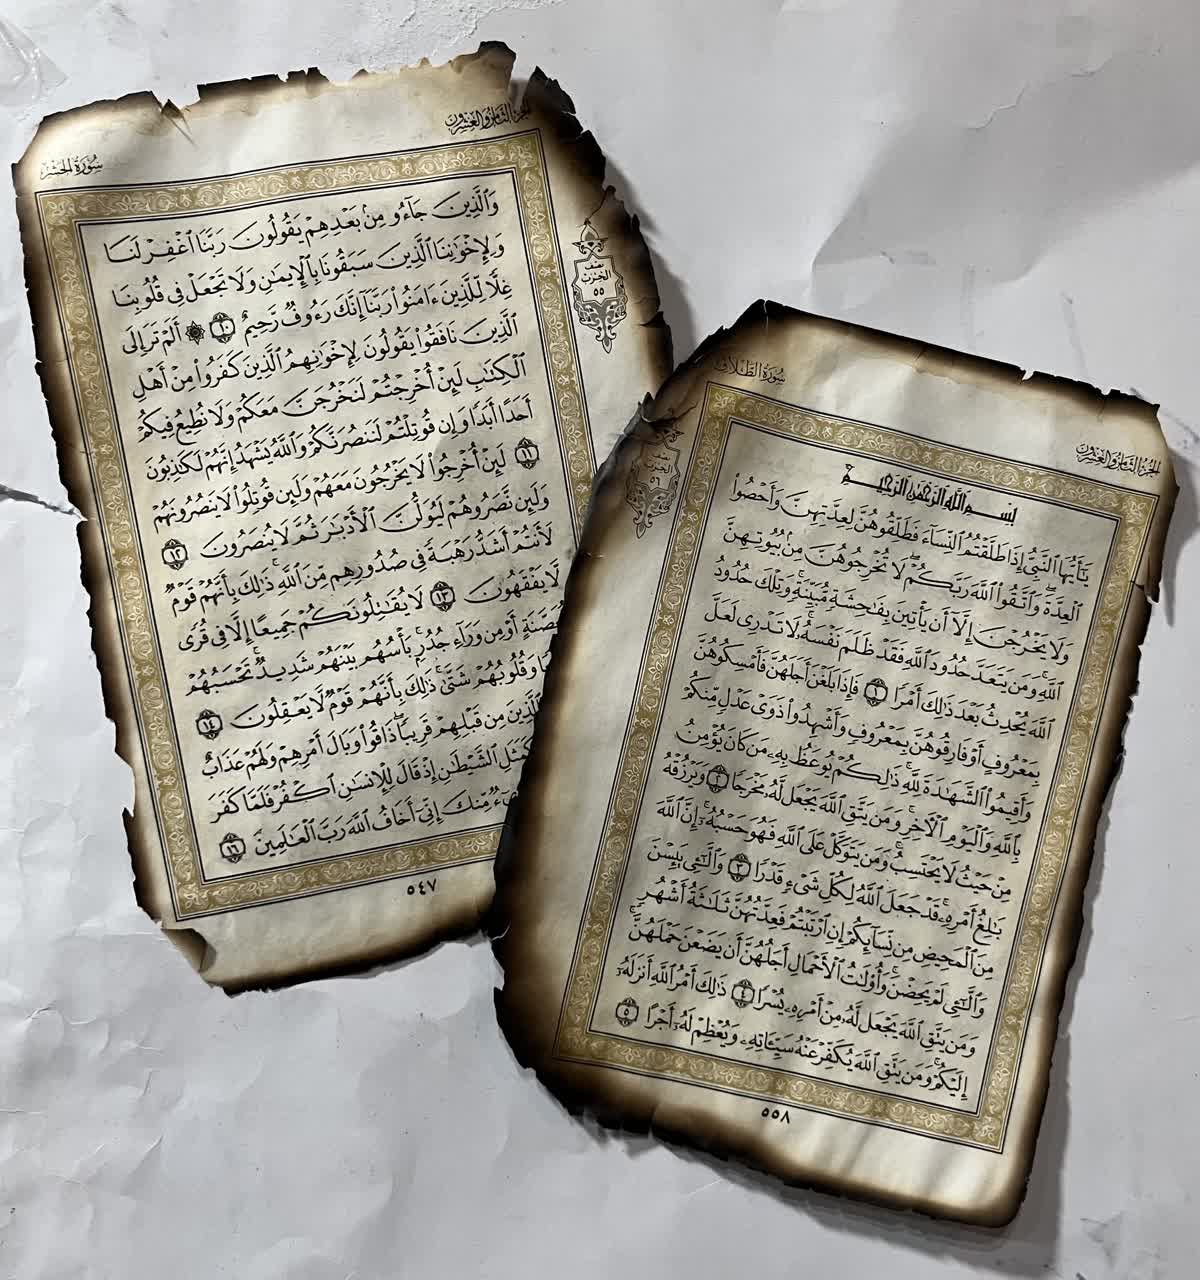 ٱلجُزْءُ الثَّامِنُ وَالعِشْرُونَ
سُورَةُ الحَشْرِ
وَٱلَّذِينَ جَآءُو مِنۢ بَعْدِهِمْ يَقُولُونَ رَبَّنَا ٱغْفِرْ لَنَا
وَلِإِخْوَٰنِنَا ٱلَّذِينَ سَبَقُونَا بِٱلْإِيمَٰنِ وَلَا تَجْعَلْ فِى قُلُوبِنَا
غِلًّا لِّلَّذِينَ ءَامَنُوا۟ رَبَّنَآ إِنَّكَ رَءُوفٌ رَّحِيمٌ ١٠ ۞ أَلَمْ تَرَ إِلَى
ٱلَّذِينَ نَافَقُوا۟ يَقُولُونَ لِإِخْوَٰنِهِمُ ٱلَّذِينَ كَفَرُوا۟ مِنْ أَهْلِ
ٱلْكِتَٰبِ لَئِنْ أُخْرِجْتُمْ لَنَخْرُجَنَّ مَعَكُمْ وَلَا نُطِيعُ فِيكُمْ
أَحَدًا أَبَدًا وَإِن قُوتِلْتُمْ لَنَنصُرَنَّكُمْ وَٱللَّهُ يَشْهَدُ إِنَّهُمْ لَكَٰذِبُونَ
١١ لَئِنْ أُخْرِجُوا۟ لَا يَخْرُجُونَ مَعَهُمْ وَلَئِن قُوتِلُوا۟ لَا يَنصُرُونَهُمْ
وَلَئِن نَّصَرُوهُمْ لَيُوَلُّنَّ ٱلْأَدْبَٰرَ ثُمَّ لَا يُنصَرُونَ ١٢
لَأَنتُمْ أَشَدُّ رَهْبَةً فِى صُدُورِهِم مِّنَ ٱللَّهِ ۚ ذَٰلِكَ بِأَنَّهُمْ قَوْمٌ
لَّا يَفْقَهُونَ ١٣ لَا يُقَٰتِلُونَكُمْ جَمِيعًا إِلَّا فِى قُرًى
أَوْ مِن وَرَآءِ جُدُرٍۭ ۚ بَأْسُهُم بَيْنَهُمْ شَدِيدٌ ۚ تَحْسَبُهُمْ
وَقُلُوبُهُمْ شَتَّىٰ ۚ ذَٰلِكَ بِأَنَّهُمْ قَوْمٌ لَّا يَعْقِلُونَ ١٤
ٱلَّذِينَ مِن قَبْلِهِمْ قَرِيبًا ۖ ذَاقُوا۟ وَبَالَ أَمْرِهِمْ وَلَهُمْ عَذَابٌ
كَمَثَلِ ٱلشَّيْطَٰنِ إِذْ قَالَ لِلْإِنسَٰنِ ٱكْفُرْ فَلَمَّا كَفَرَ
مِّنكَ إِنِّىٓ أَخَافُ ٱللَّهَ رَبَّ ٱلْعَٰلَمِينَ ١٦
نصف
الحزب
٥٥
٥٤٧
سُورَةُ الطَّلَاقِ
الجُزْءُ الثَّامِنُ وَالعِشْرُونَ
نصف
الحزب
٥٦
بِسْمِ ٱللَّهِ ٱلرَّحْمَٰنِ ٱلرَّحِيمِ
يَٰٓأَيُّهَا ٱلنَّبِىُّ إِذَا طَلَّقْتُمُ ٱلنِّسَآءَ فَطَلِّقُوهُنَّ لِعِدَّتِهِنَّ وَأَحْصُوا۟
ٱلْعِدَّةَ ۖ وَٱتَّقُوا۟ ٱللَّهَ رَبَّكُمْ ۖ لَا تُخْرِجُوهُنَّ مِنۢ بُيُوتِهِنَّ
وَلَا يَخْرُجْنَ إِلَّآ أَن يَأْتِينَ بِفَٰحِشَةٍ مُّبَيِّنَةٍ ۚ وَتِلْكَ حُدُودُ
ٱللَّهِ ۚ وَمَن يَتَعَدَّ حُدُودَ ٱللَّهِ فَقَدْ ظَلَمَ نَفْسَهُۥ ۚ لَا تَدْرِى لَعَلَّ
ٱللَّهَ يُحْدِثُ بَعْدَ ذَٰلِكَ أَمْرًا ١ فَإِذَا بَلَغْنَ أَجَلَهُنَّ فَأَمْسِكُوهُنَّ
بِمَعْرُوفٍ أَوْ فَارِقُوهُنَّ بِمَعْرُوفٍ وَأَشْهِدُوا۟ ذَوَىْ عَدْلٍ مِّنكُمْ
وَأَقِيمُوا۟ ٱلشَّهَٰدَةَ لِلَّهِ ۚ ذَٰلِكُمْ يُوعَظُ بِهِۦ مَن كَانَ يُؤْمِنُ
بِٱللَّهِ وَٱلْيَوْمِ ٱلْءَاخِرِ ۚ وَمَن يَتَّقِ ٱللَّهَ يَجْعَل لَّهُۥ مَخْرَجًا ٢ وَيَرْزُقْهُ
مِنْ حَيْثُ لَا يَحْتَسِبُ ۚ وَمَن يَتَوَكَّلْ عَلَى ٱللَّهِ فَهُوَ حَسْبُهُۥٓ ۚ إِنَّ ٱللَّهَ
بَٰلِغُ أَمْرِهِۦ ۚ قَدْ جَعَلَ ٱللَّهُ لِكُلِّ شَىْءٍ قَدْرًا ٣ وَٱلَّٰٓـِٔى يَئِسْنَ
مِنَ ٱلْمَحِيضِ مِن نِّسَآئِكُمْ إِنِ ٱرْتَبْتُمْ فَعِدَّتُهُنَّ ثَلَٰثَةُ أَشْهُرٍ
وَٱلَّٰٓـِٔى لَمْ يَحِضْنَ ۚ وَأُو۟لَٰتُ ٱلْأَحْمَالِ أَجَلُهُنَّ أَن يَضَعْنَ حَمْلَهُنَّ ۚ
وَمَن يَتَّقِ ٱللَّهَ يَجْعَل لَّهُۥ مِنْ أَمْرِهِۦ يُسْرًا ٤ ذَٰلِكَ أَمْرُ ٱللَّهِ أَنزَلَهُۥٓ
إِلَيْكُمْ ۚ وَمَن يَتَّقِ ٱللَّهَ يُكَفِّرْ عَنْهُ سَيِّـَٔاتِهِۦ وَيُعْظِمْ لَهُۥٓ أَجْرًا ٥
٥٥٨